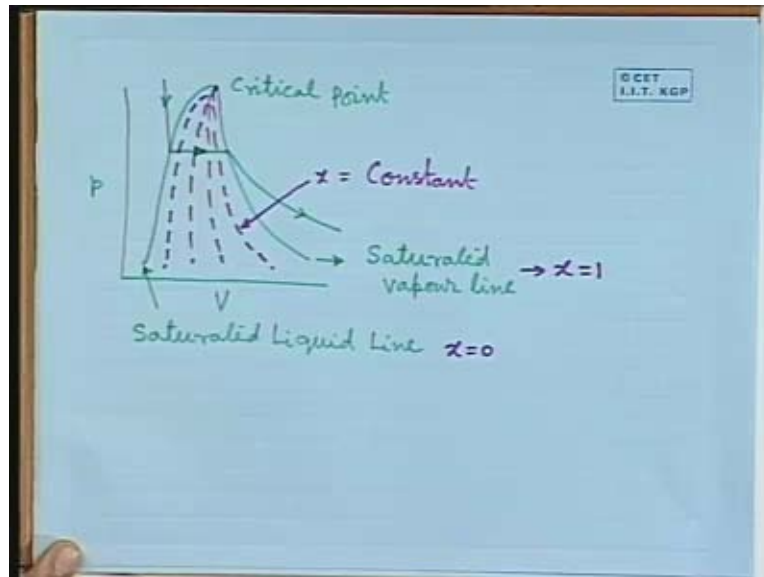 © CET
I.I.T. KGP
Critical Point
p
x = Constant
Saturated
vapour line → x=1
V
Saturated Liquid Line x=0